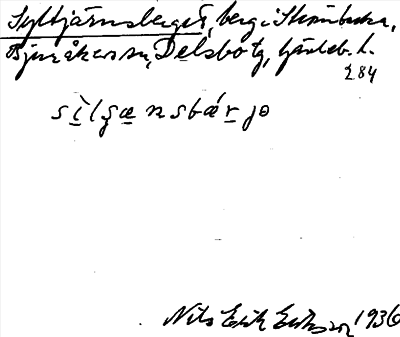 Sylltjärnsberget, berg i Strömbacka,
Bjuråkers sn, Delsbo tg, Gävleb. l.
284
sìlʂænsbǽrjə
Nils Erik Eriksson 1936